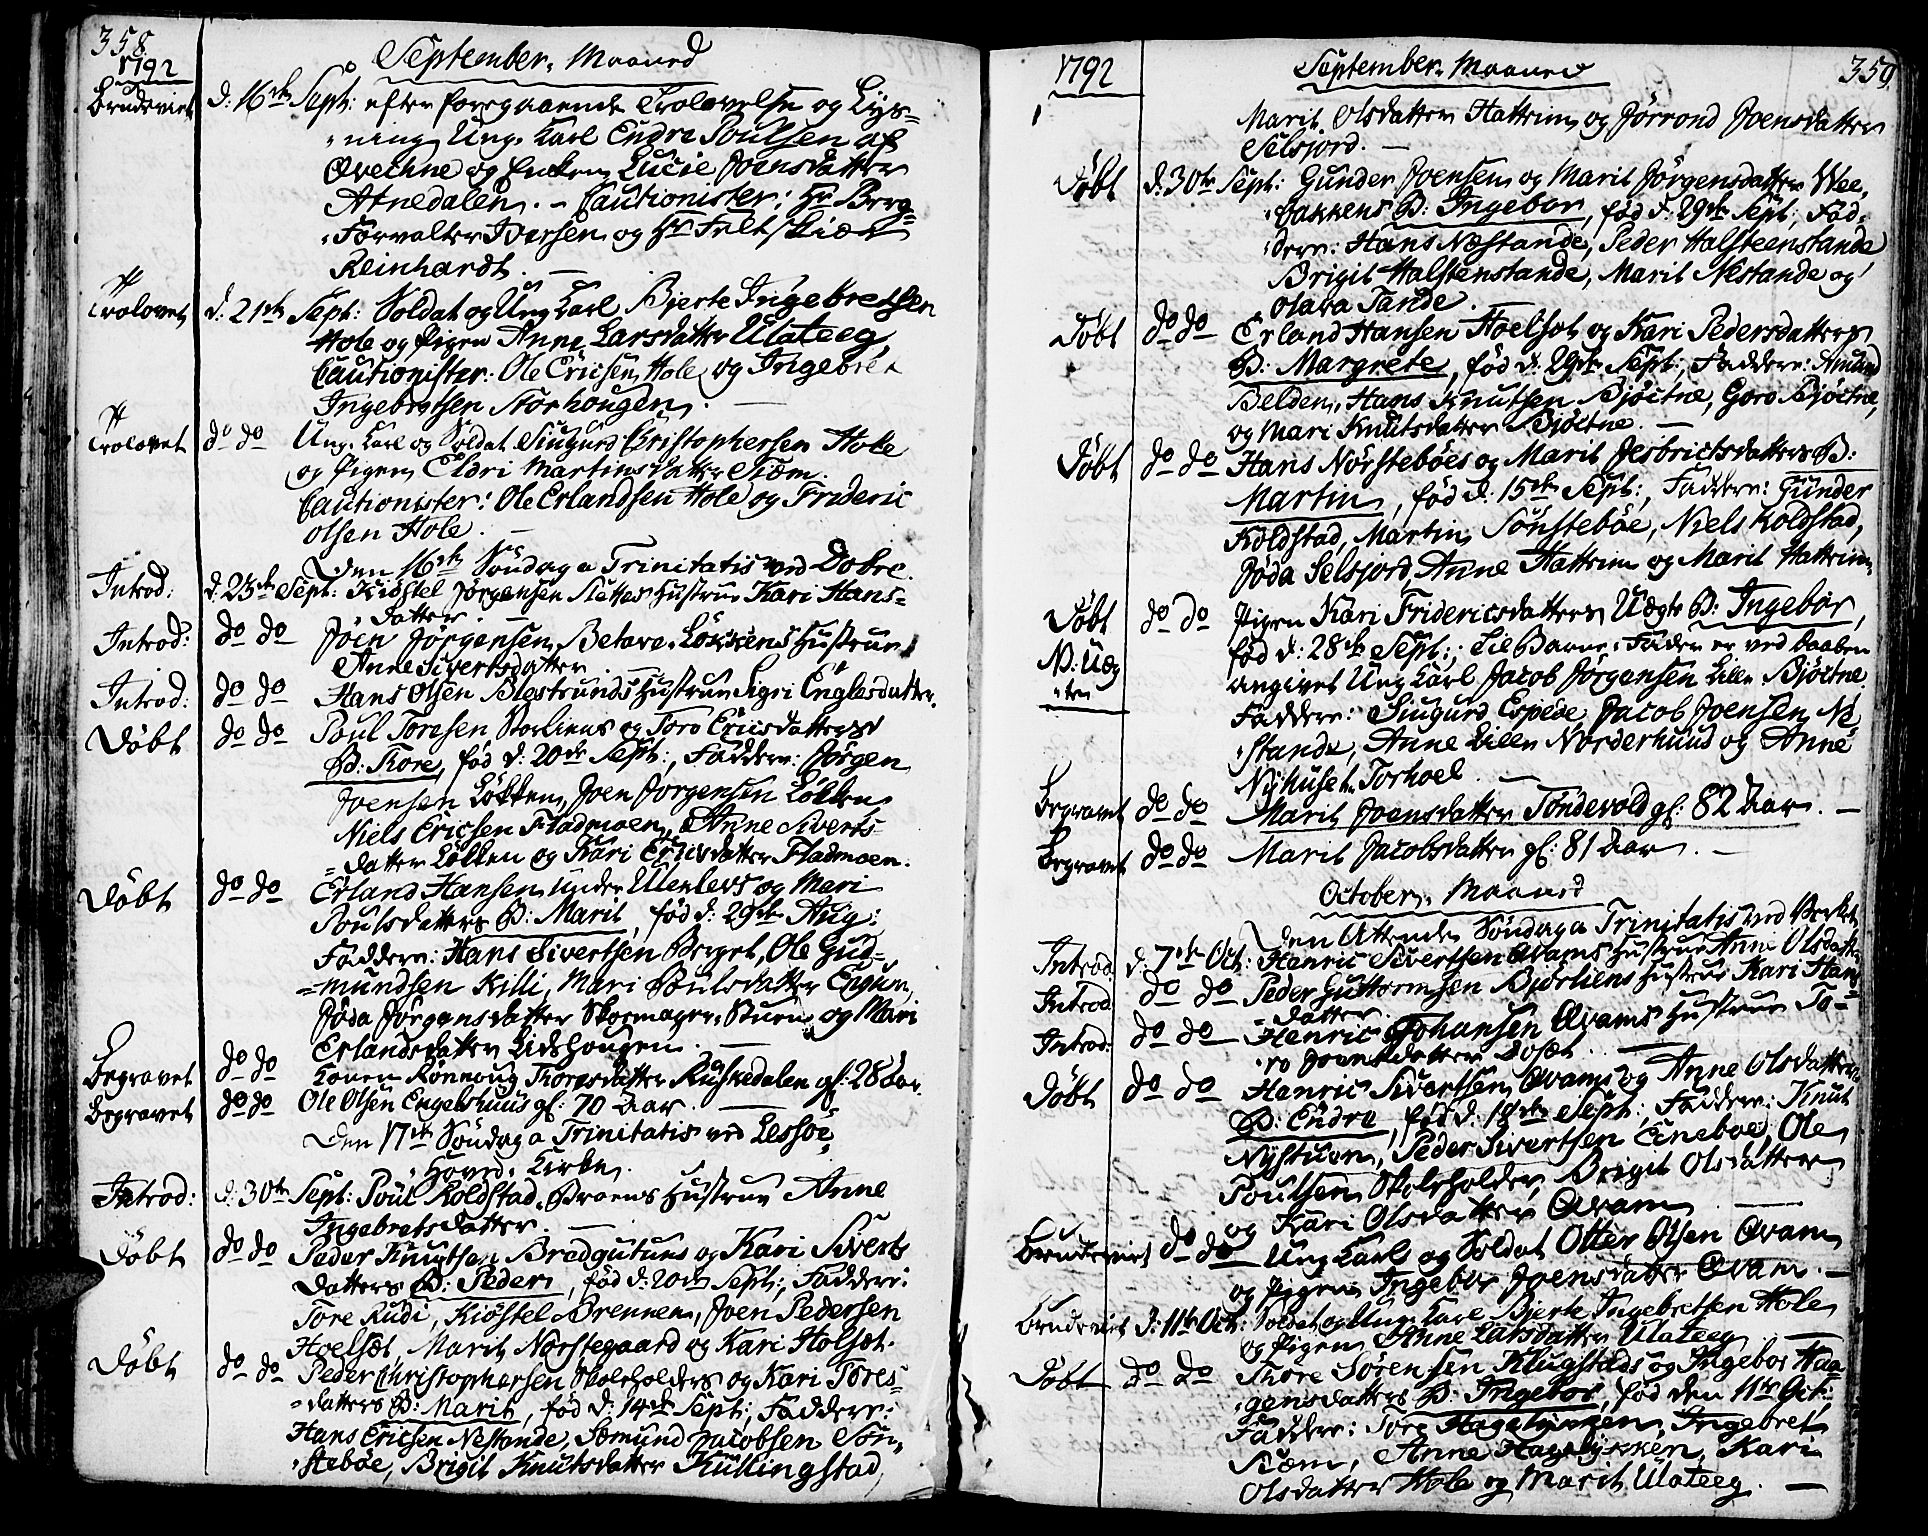 358.
1792
September. Maaned
Brudeviet d: 16de Sept: efter foregaaende Trolovelse og Lys-
ning Ung. Karl Endre Poulsen af
Øvechne og Enken Lucie Joensdatter
Atnedalen. - Cautionister: Hr Berg-
Forvalter Iversen og Hr Feltskiær
Reinhardt. -
Trolovet d: 21de Sept: Soldat og Ung Karl Bjerte Ingebretsen
Hole og Pigen Anne Larsdatter Ulateeg,
Cautionister: Ole Ericsen Hole og Ingebret
Ingebretsen Storhougen. -
Trolovet do do Ung. Karl og Soldat Siugurd Christophersen Hole
og Pigen Eldri Martinsdatter Siæm.
Cautionister: Ole Erlandsen Hole og Frideric
Olsen Hole. -
Den 16de Søndag a Trinitatis ved Dobre.
Introd: d. 23de Sept: Kiøstel Jørgensen Slettes Hustrue Kari Hans-
datter. -
Introd: do do Joen Jørgensen Betave. Løkkens Hustrue
Anne Sivertsdatter. -
Introd: do do Hans Olsen Blegstrunds Hustrue Sigri Englesdatter.
Døbt do do Poul Toresen Storliens og Toro Ericsdatters
B: Tore, fød d: 20de Sept:, Faddere: Jørgen
Joensen Løkken, Joen Jørgensen Løkken
Niels Ericsen Fladmoen, Anne Siverts-
datter Løkken og Kari Ericsdatter Fladmoen.
Døbt do do Erland Hansen under Ulenlevs og Mari
Poulsdatters B: Marit, fød d: 29de Aug:
Faddere: Hans Sivertsen Berget, Ole Gud-
mundsen Killi, Mari Poulsdatter Engum,
Jøda Jørgensdatter Skomager. Stuen og Mari
Erlandsdatter Lidshougen. -
Begravet do do Konen Rønnoug Thoresdatter Ruskedalen gl: 28 Aar.
Begravet do do Ole Olsen Engelshuus gl: 70 Aar. -
Den 17de Søndag a Trinitatis ved Lessøe
Hoved. Kirke.
Introd: d: 30te Sept: Poul Koldstad. Broens Hustrue Anne
Ingebretsdatter. -
Døbt do do Peder Knutsen Bredgutuns og Kari Siverts
datters B: Peder, fød d: 20de Sept:, Faddere:
Tore Rudi, Kiøstel Brennen, Joen Pedersen
Hoelsæt, Marit Norstegaard og Kari Holsæt.
Døbt do do Peder Christophersen Skoleholders og Kari Tores-
datters B: Marit, fød d: 14de Sept:, Faddere:
Hans Ericsen Nestande, Sæmund Jacobsen Søn-
stebøe, Brigit Knutsdatter Kullingstad,
1792 September. Maaned 359
Marit Olsdatter Hattrim og Jørrond Joensdatter
Selsjord. -
Døbt d: 30te Sept: Gunder Joensen og Marit Jørgensdatter Wee,
bakkens B: Ingebor, fød d: 29de Sept:, Fad-
dere: Hans Nestande, Peder Halsteenstande
Brigit Halstenstande, Marit Nestande og
Olava Tande.
Døbt do do Erland Hansen Hoelsæt og Kari Pedersdatters
B: Margrete, fød d: 29de Sept:, Faddere: Amund
Belden, Hans Knutsen Bjøitne, Goro Bjøitne,
og Mari Knutsdatter Bjøitne. -
Døbt do do Hans Nørstebøes og Marit Jesbrictsdatters B:
Martin, fød d: 15de Sept:, Faddere: Gunder
Koldstad, Martin Sønstebøe, Niels Koldstad,
Jøda Selsjord, Anne Hattrim og Marit Hattrim.
Døbt do do Pigen Kari Fridericsdatters Uægte B: Ingebor,
N: Uæg-
te
fød d: 28de Sept:, til Barne-Fader er ved Daaben
angivet Ung Karl Jacob Jørgensen Lille Bjøitne.
Faddere: Siugurd Espede, Jacob Joensen Ne-
stande, Anne Lille Norderhuus og Anne
Nyhuset. Torhoel. -
Begravet do do Marit Joensdatter Tøndevold gl: 82 Aar. -
Begravet do do Marit Jacobsdatter gl: 81 Aar. -
October. Maaned
Den Attende Søndag a Trinitatis ved Verket
Introd d. 7de Oct: Henric Sivertsen Qvams Hustrue Anne Olsdatter
Introd do do Peder Guttormsen Bjorliens Hustrue Kari Hans-
datter.
Introd: do do Henric Johansen Qvams Hustrue To-
ro Joensdatter Dosæt. -
Døbt do do Henric Sivertsen Qvams og Anne Olsdatters
B: Endre, fød d: 18de Sept:, Faddere: Knut
Nystuen, Peder Sivertsen Einebøe, Ole
Poulsen Skoleholder, Brigit Olsdatter
og Kari Olsdatter Qvam -
Brudeviet do do Ung Karl og Soldat Otter Olsen Qvam
og Pigen Ingebor Joensdatter Qvam. -
Brudeviet d: 11te Oct: Soldat og Ung Karl Bjerte Ingebretsen Hole
og Pigen Anne Larsdatter Ulateeg -
Døbt do do Thore Sørensen Klugstads og Ingebor Haa-
gensdatters B: Ingebor, fød den 11te Oct:,
Faddere: Tore Hagelykken, Ingebret
Siæm, Anne Hagelykken, Kari
Olsdatter Hole og Marit Ulateeg. -